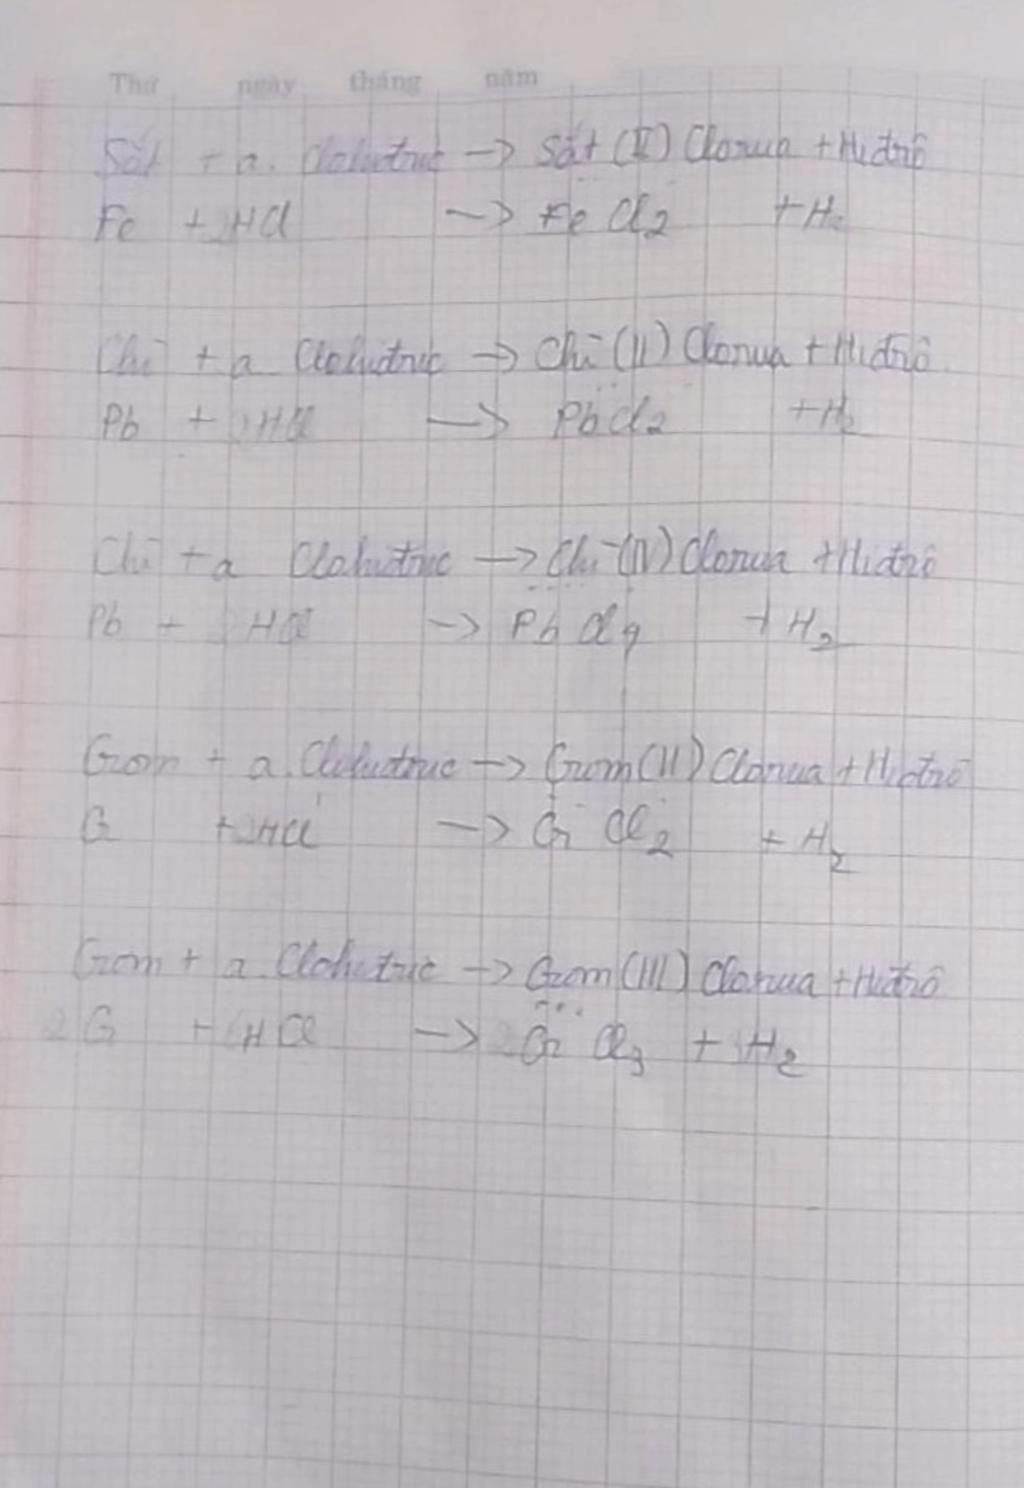 Thứ ngày tháng năm
Sắt + a. Clohiđric -> Sắt (II) Clorua + Hiđrô
Fe + 2HCl -> FeCl2 + H2
Chì + a Clohiđric -> Chì (II) Clorua + Hiđrô
Pb + 2HCl -> PbCl2 + H2
Chì + a Clohiđric -> Chì (IV) Clorua + Hiđrô
Pb + HCl -> PbCl4 + H2
Crom + a. Clohiđric -> Crom (II) Clorua + Hiđrô
Cr + 2HCl -> CrCl2 + H2
Crom + a. Clohiđric -> Crom (III) Clorua + Hiđrô
2Cr + 6HCl -> 2CrCl3 + 3H2